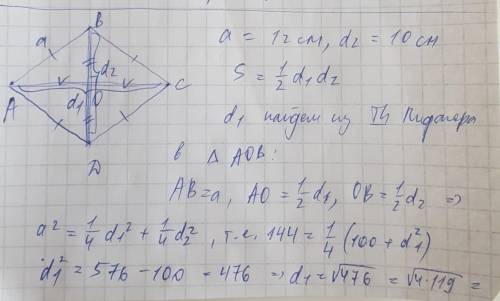 B
a
d₂
A
d₁
O
C
D
a = 12 см, d₂ = 10 см
S = ½ d₁ d₂
d₁ найдем из Th Пифагора
в △ AOB:
AB = a, AO = ½ d₁, OB = ½ d₂ ⇒
a² = ¼ d₁² + ¼ d₂², т.е. 144 = ¼ (100 + d₁²)
d₁² = 576 - 100 = 476 ⇒ d₁ = √476 = √4·119 =